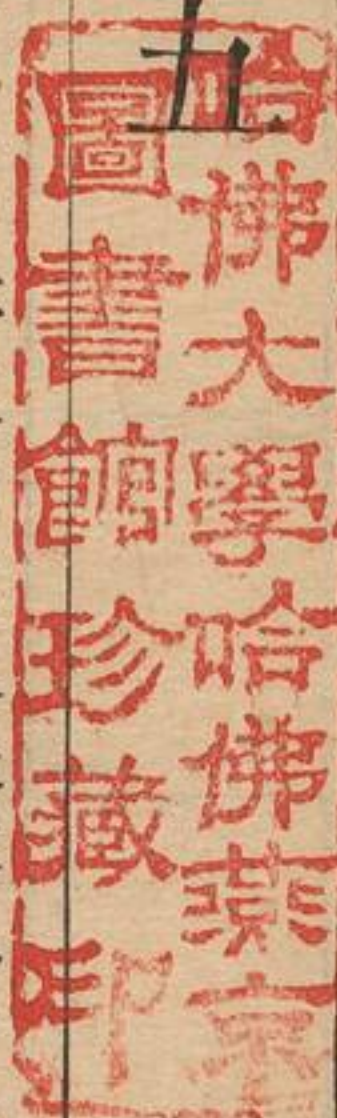 五
哈佛大學哈佛燕京
圖書館珍藏印